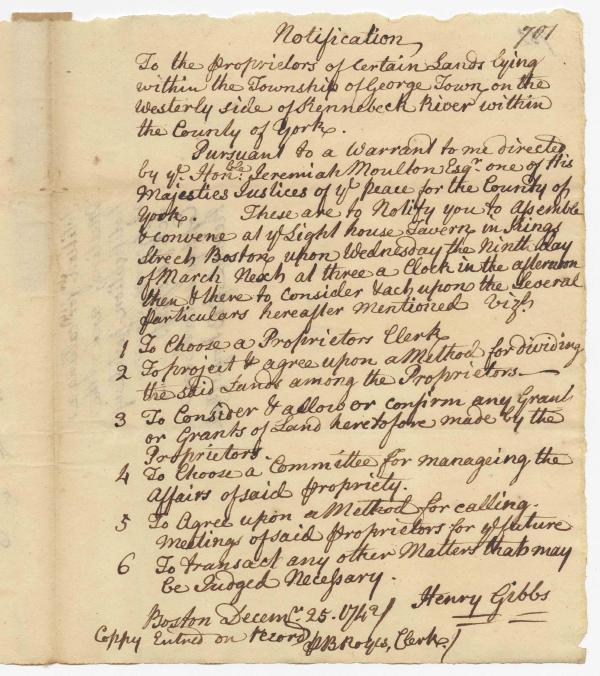 Notification
701
To the Proprietors of Certain Lands lying
within the Township of George Town on the
Westerly side of Kennebeck River within
the County of York.
Pursuant to a Warrant to me directed
by yᵉ Honᵇˡᵉ Jeremiah Moulton Esqʳ. one of His
Majesties Justices of yᵉ peace for the County of
York. These are to Notify you to Assemble
& convene at yᵉ Light house Tavern in Kings
Street Boston upon Wednesday the Ninth day
of March Next at three a Clock in the afternoon
then & there to consider & act upon the Several
particulars hereafter Mentioned Vizᵗ
1 To Choose a Proprietors Clerk
2 To project & agree upon a Method for dividing
the said Lands among the Proprietors.
3 To Consider & allow or confirm any Grant
or Grants of Land heretofore made by the
Proprietors.
4 To Choose a Committee for manageing the
Affairs of said Propriety.
5 To Agree upon a Method for calling
Meetings of said Proprietors for yᵉ future
6 To transact any other Matters that may
be Judged Necessary.
Henry Gibbs
Boston Decemʳ. 25. 1742
Coppy Entred on record
Clerk